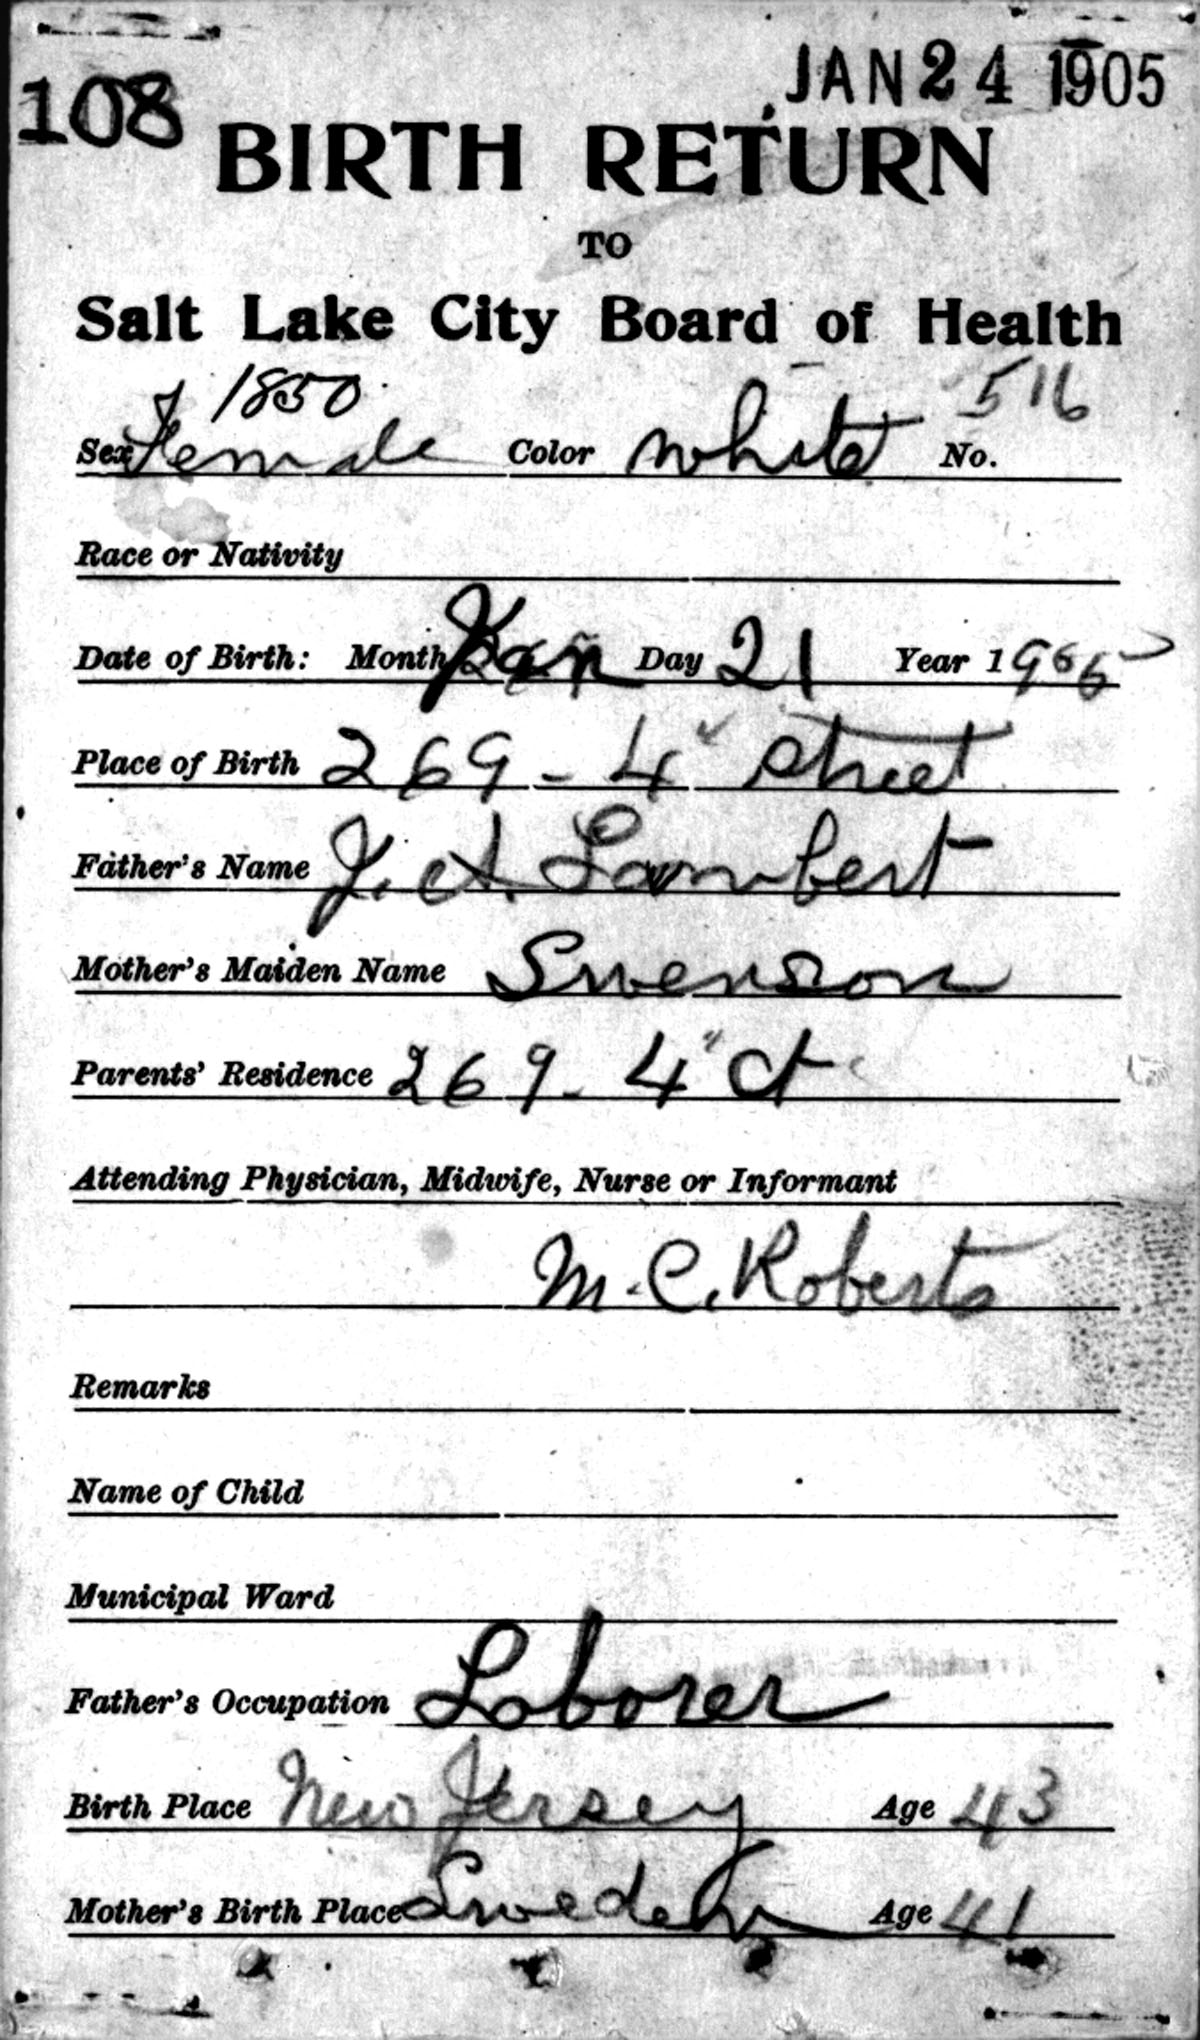 JAN 24 1905
108
BIRTH RETURN
TO
Salt Lake City Board of Health
1850 516
Sex Female Color white No.
Race or Nativity
Date of Birth: Month Jan Day 21 Year 1905
Place of Birth 269 - 4" Street
Father's Name J. A. Lambert
Mother's Maiden Name Swenson
Parents' Residence 269 - 4" St
Attending Physician, Midwife, Nurse or Informant
M. C. Roberts
Remarks
Name of Child
Municipal Ward
Father's Occupation Laborer
Birth Place New Jersey Age 43
Mother's Birth Place Sweden Age 41